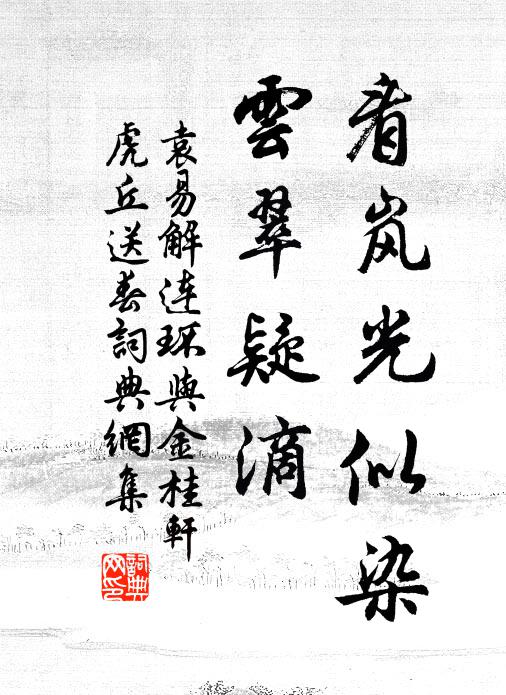 看岚光似染
雲翠疑滴
袁易解连环與金桂軒
虎丘送春詞典網集
詞典网印